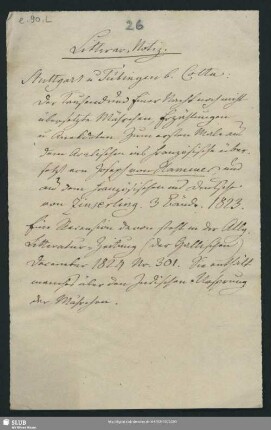 c. 90. L
26
Litterar. Notiz.
Stuttgart u Tübingen b. Cotta:
Der Tausend und Einer Nacht noch nicht
übersetzte Mährchen, Erzählungen
u Anekdoten. Zum ersten Male aus
dem Arabischen ins Französische über-
setzt von Joseph von Hammer, und
aus dem Französischen ins Deutsche
von Zinserling. 3 Bände. 1823.
Eine Recension davon steht in der Allg.
Litteratur-Zeitung (der Hallischen)
December 1824 Nr. 301. Sie enthält
manches über den Indischen Ursprung
der Mährchen.
SLUB